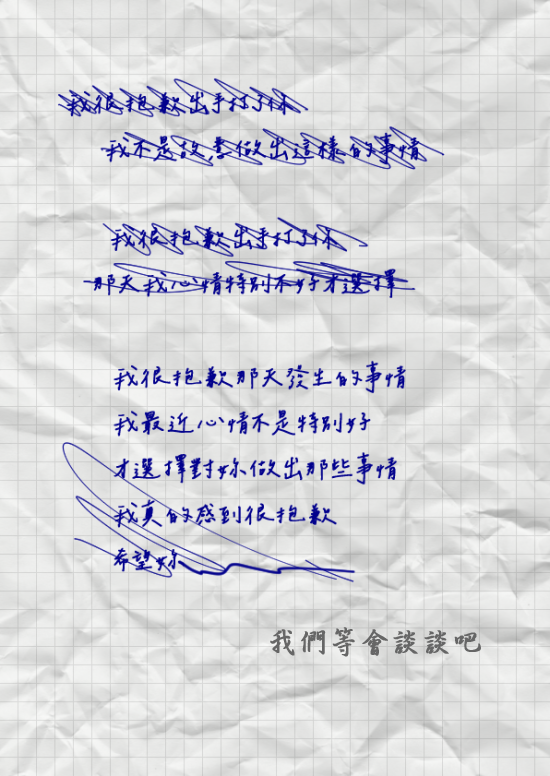 我很抱歉出手打了你
我不是故意做出這樣的事情
我很抱歉出手打了你
那天我心情特別不好才選擇
我很抱歉那天發生的事情
我最近心情不是特別好
才選擇對妳做出那些事情
我真的感到很抱歉
希望妳
我們等會談談吧